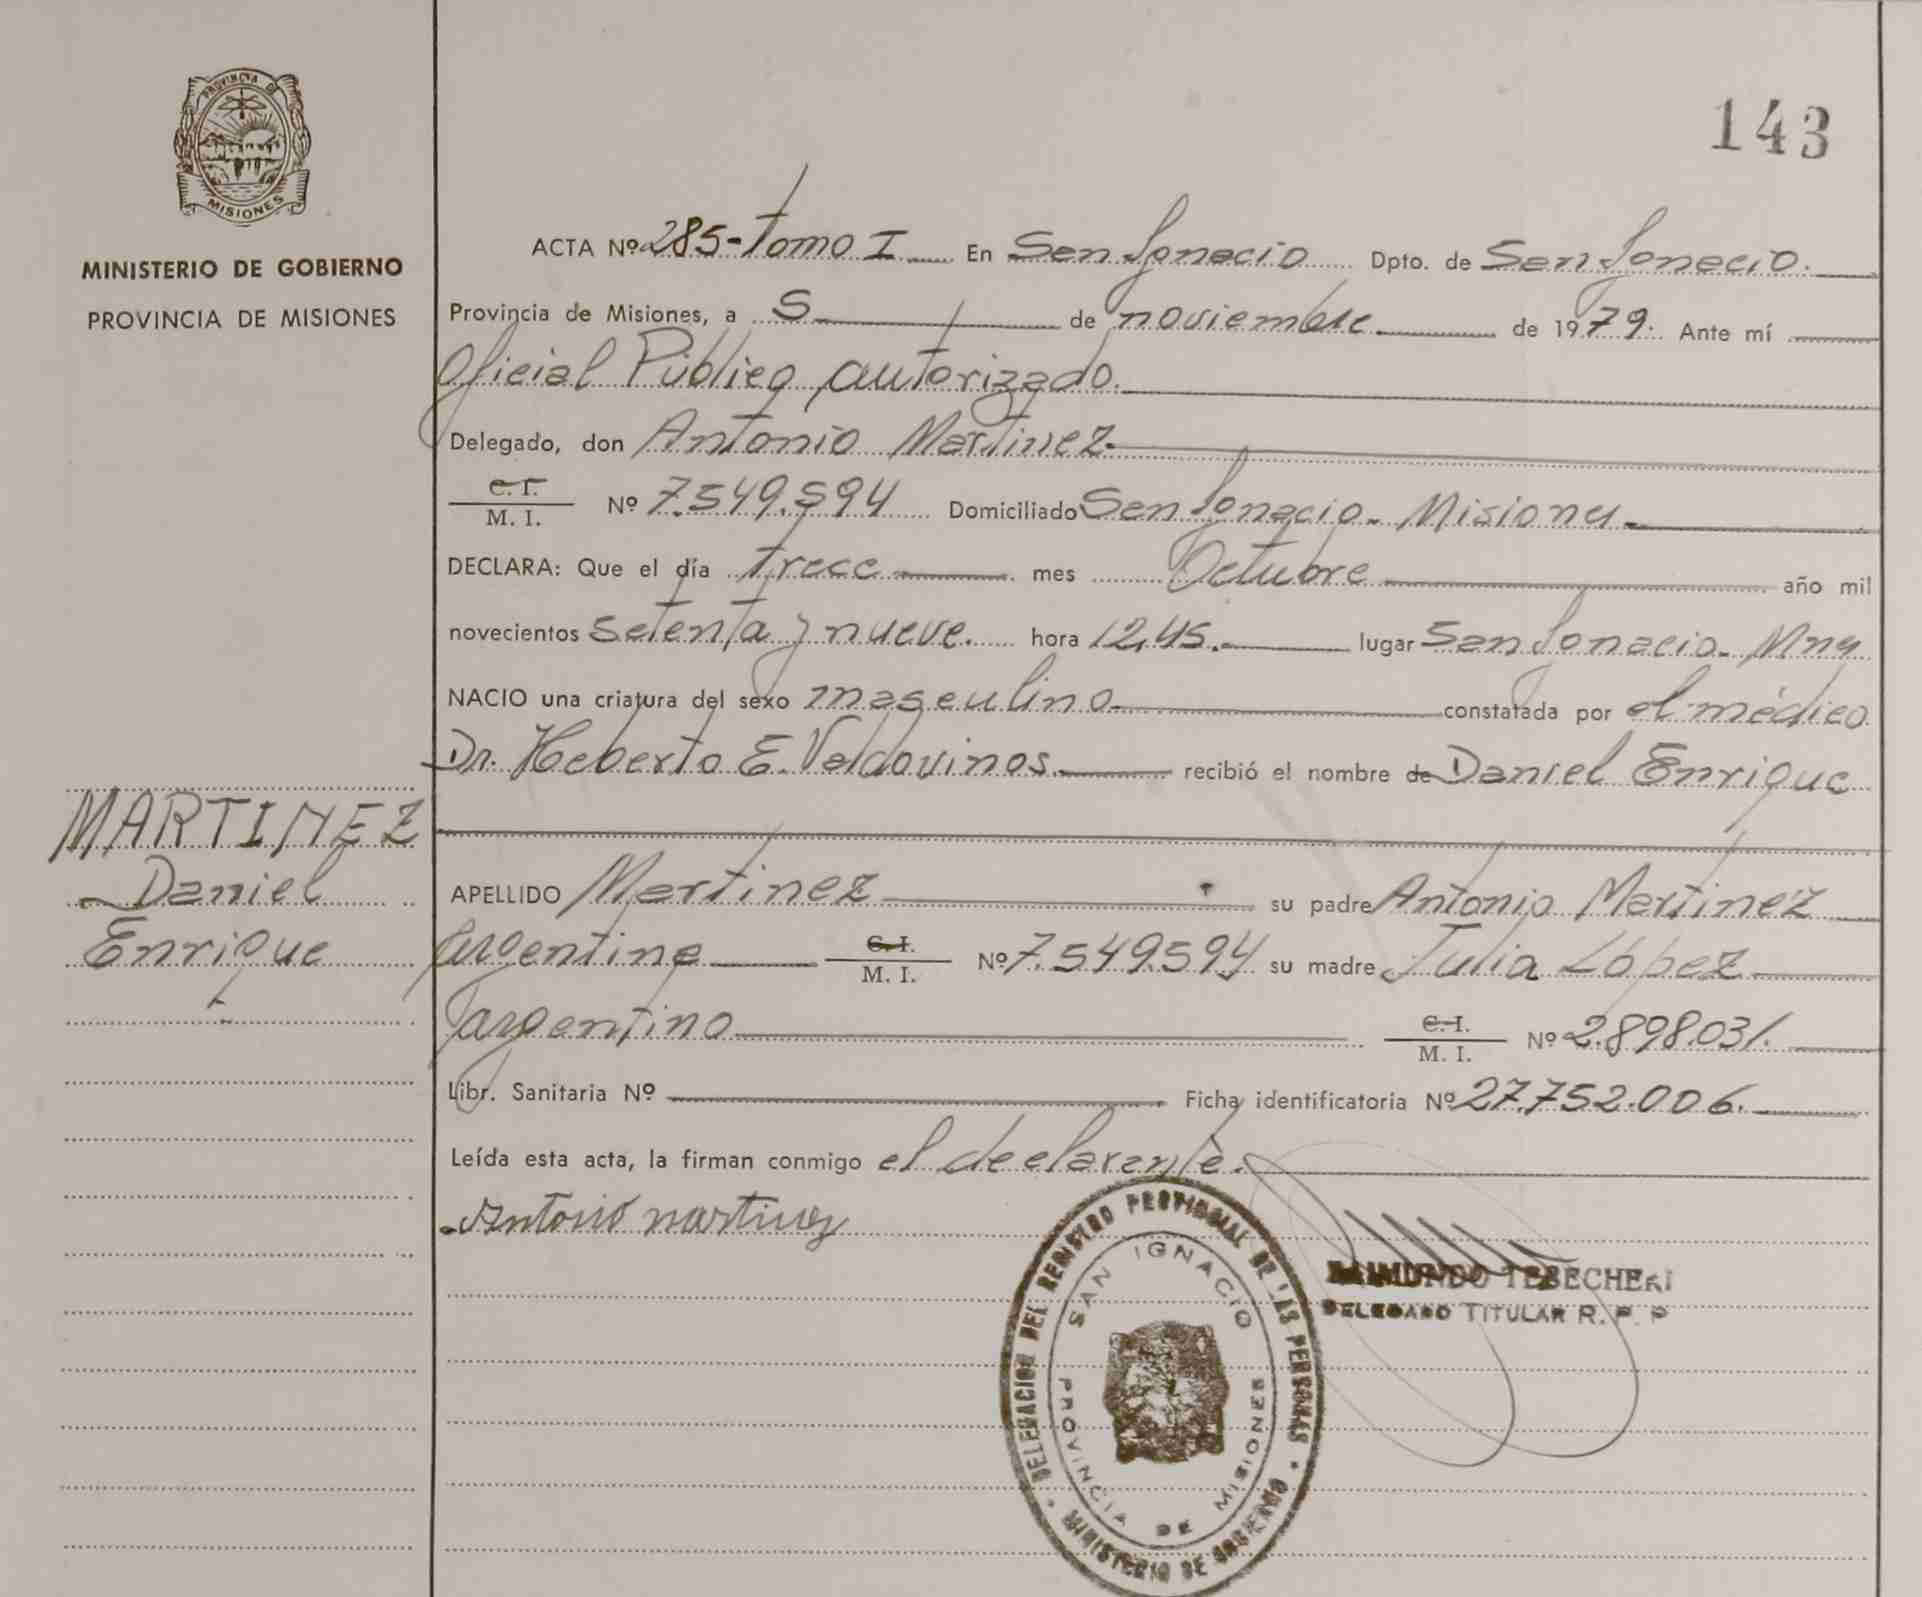 PROVINCIA DE
MISIONES
MINISTERIO DE GOBIERNO
PROVINCIA DE MISIONES
MARTINEZ
Daniel
Enrique
143
ACTA Nº 285-Tomo I En San Ignacio Dpto. de San Ignacio.
Provincia de Misiones, a 5 de noviembre de 1979. Ante mí
Oficial Público autorizado.
Delegado, don Antonio Martinez
C. I. M. I. Nº 7.549.594 Domiciliado San Ignacio. Misiones
DECLARA: Que el día trece mes Octubre año mil
novecientos setenta y nueve. hora 12,45. lugar San Ignacio. Mnes
NACIO una criatura del sexo masculino constatada por el médico
Dr. Heberto E. Valdovinos. recibió el nombre de Daniel Enrique
APELLIDO Martinez su padre Antonio Martinez
argentina C. I. M. I. Nº 7.549.594 su madre Julia López
argentino C. I. M. I. Nº 2.898.031.
Libr. Sanitaria Nº Ficha identificatoria Nº 27.752.006.
Leída esta acta, la firman conmigo el declarante.
Antonio martinez
DELEGACION DEL REGISTRO PROVINCIAL DE LAS PERSONAS
MINISTERIO DE GOBIERNO
SAN IGNACIO
PROVINCIA DE MISIONES
RAIMUNDO TESECHERI
DELEGADO TITULAR R. P. P